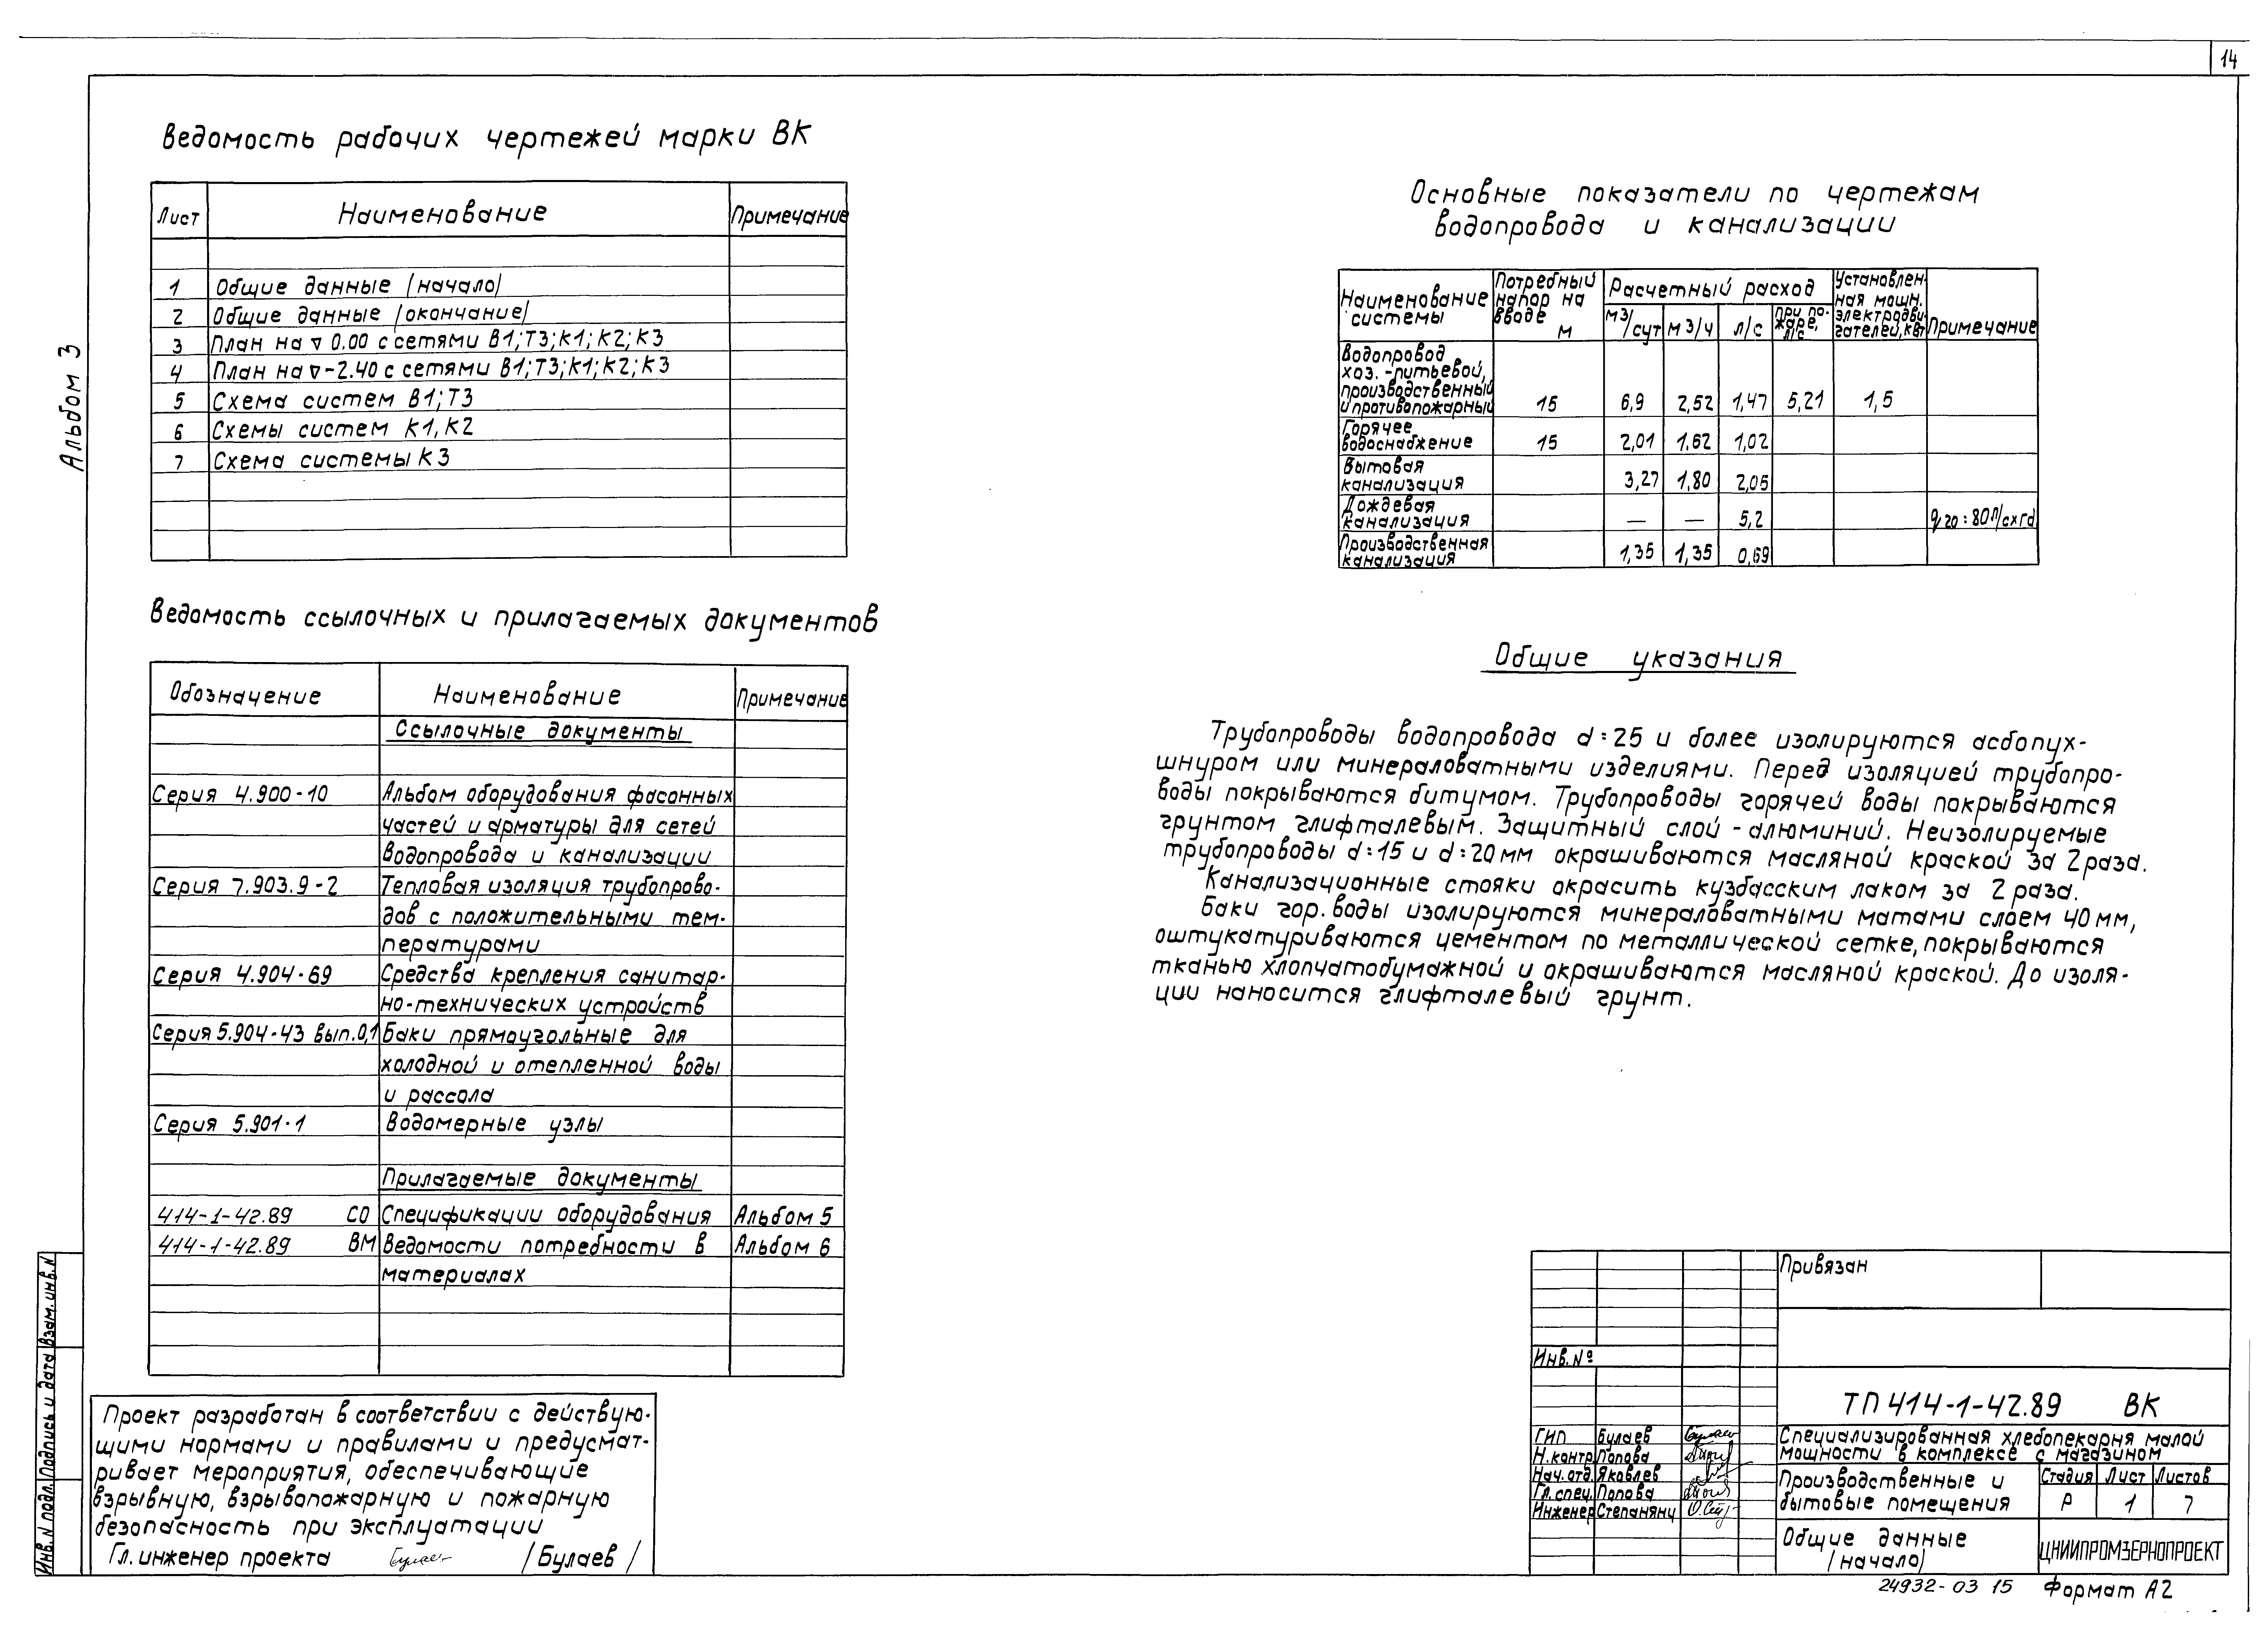 14
Альбом 3
Ведомость рабочих чертежей марки ВК
Лист Наименование Примечание
1 Общие данные /начало/
2 Общие данные /окончание/
3 План на ▽ 0.00 с сетями В1;Т3;К1;К2;К3
4 План на ▽-2.40 с сетями В1;Т3;К1;К2;К3
5 Схема систем В1;Т3
6 Схемы систем К1,К2
7 Схема системы К3
Ведомость ссылочных и прилагаемых документов
Обозначение Наименование Примечание
Ссылочные документы
Серия 4.900-10 Альбом оборудования фасонных
частей и арматуры для сетей
водопровода и канализации
Серия 7.903.9-2 Тепловая изоляция трубопрово-
дов с положительными тем-
пературами
Серия 4.904-69 Средства крепления санитар-
но-технических устройств
Серия 5.904-43 вып.0,1 Баки прямоугольные для
холодной и отепленной воды
и рассола
Серия 5.901-1 Водомерные узлы
Прилагаемые документы
414-1-42.89 СО Спецификации оборудования Альбом 5
414-1-42.89 ВМ Ведомости потребности в Альбом 6
материалах
Проект разработан в соответствии с действую-
щими нормами и правилами и предусмат-
ривает мероприятия, обеспечивающие
взрывную, взрывопожарную и пожарную
безопасность при эксплуатации
Гл. инженер проекта /Булаев/
Инв.N подл. Подпись и дата Взам.инв.N
Основные показатели по чертежам
водопровода и канализации
Наименование системы Потребный напор на вводе м Расчетный расход Установлен-ная мощн. электродви-гателей, кВт Примечание
м3/сут м3/ч л/с при по-жаре, л/с
Водопровод
хоз.-питьевой,
производственный
и противопожарный 15 6,9 2,52 1,47 5,21 1,5
Горячее
водоснабжение 15 2,01 1,62 1,02
Бытовая
канализация 3,27 1,80 2,05
Дождевая
канализация — — 5,2 q20=80л/схга
Производственная
канализация 1,35 1,35 0,69
Общие указания
Трубопроводы водопровода d=25 и более изолируются асбопух-
шнуром или минераловатными изделиями. Перед изоляцией трубопро-
воды покрываются битумом. Трубопроводы горячей воды покрываются
грунтом глифталевым. Защитный слой - алюминий. Неизолируемые
трубопроводы d=15 и d=20мм окрашиваются масляной краской за 2 раза.
Канализационные стояки окрасить кузбасским лаком за 2 раза.
Баки гор. воды изолируются минераловатными матами слоем 40 мм,
оштукатуриваются цементом по металлической сетке, покрываются
тканью хлопчатобумажной и окрашиваются масляной краской. До изоля-
ции наносится глифталевый грунт.
Привязан
Инв. №
ТП 414-1-42.89 ВК
ГИП Булаев
Н.контр. Попова
Нач.отд. Яковлев
Гл. спец. Попова
Инженер Степанянц
Специализированная хлебопекарня малой
мощности в комплексе с магазином
Производственные и
бытовые помещения
Стадия Лист Листов
Р 1 7
Общие данные
/начало/
ЦНИИПРОМЗЕРНОПРОЕКТ
24932-03 15 Формат А2